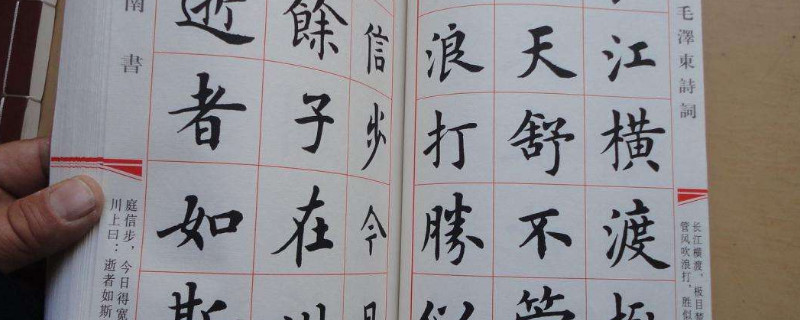 毛澤東詩詞
长江横渡，极目楚
管风吹浪打，胜似
江橫渡極
天舒不管
浪打勝似
信步今日
餘子在川
逝者如斯
南書
庭信步，今日得宽
川上曰：逝者如斯